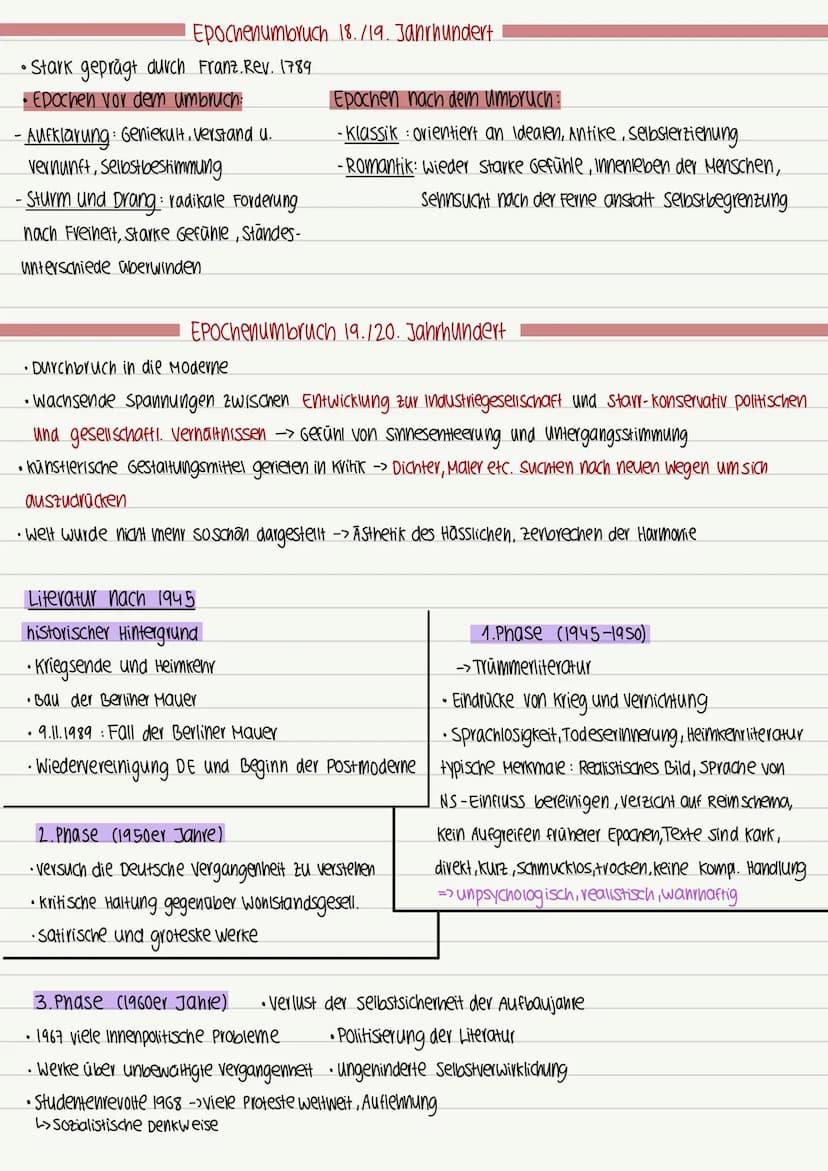 Epochenumbruch 18./19. Jahrhundert
• Stark geprägt durch Franz.Rev. 1789
• Epochen vor dem Umbruch:
- Aufklärung: Geniekult, Verstand u.
Vernunft, Selbstbestimmung
- Sturm und Drang: radikale Forderung
nach Freiheit, starke Gefühle, Standes-
unterschiede überwinden
Epochen nach dem Umbruch:
- Klassik: orientiert an Idealen, Antike, Selbsterziehung
- Romantik: wieder starke Gefühle, Innenleben der Menschen,
Sehnsucht nach der Ferne anstatt Selbstbegrenzung
Epochenumbruch 19./20. Jahrhundert
• Durchbruch in die Moderne
• Wachsende Spannungen zwischen Entwicklung zur Industriegesellschaft und starr-konservativ politischen
und gesellschaftl. Verhältnissen -> Gefühl von Sinnesentleerung und Untergangsstimmung
• künstlerische Gestaltungsmittel gerieten in Kritik -> Dichter, Maler etc. suchten nach neuen Wegen um sich
auszudrücken
• Welt wurde nicht mehr so schön dargestellt -> Ästhetik des Hässlichen, Zerbrechen der Harmonie
Literatur nach 1945
historischer Hintergrund
• Kriegsende und Heimkehr
• Bau der Berliner Mauer
• 9.11.1989 : Fall der Berliner Mauer
• Wiedervereinigung DE und Beginn der Postmoderne
1.Phase (1945-1950)
-> Trümmerliteratur
• Eindrücke von Krieg und Vernichtung
• Sprachlosigkeit, Todeserinnerung, Heimkehrliteratur
typische Merkmale: Realistisches Bild, Sprache von
NS-Einfluss bereinigen, Verzicht auf Reimschema,
kein Aufgreifen früherer Epochen, Texte sind kark,
direkt, kurz, schmucklos, trocken, keine kompl. Handlung
=> unpsychologisch, realistisch, wahrhaftig
2.Phase (1950er Jahre)
• Versuch die Deutsche Vergangenheit zu verstehen
• kritische Haltung gegenüber Wohlstandsgesell.
• satirische und groteske Werke
3.Phase (1960er Jahre) • Verlust der Selbstsicherheit der Aufbaujahre
• 1967 viele innenpolitische Probleme • Politisierung der Literatur
• Werke über unbewältigte Vergangenheit • ungehinderte Selbstverwirklichung
• Studentenrevolte 1968 -> viele Proteste weltweit, Auflehnung
↳ Sozialistische Denkweise